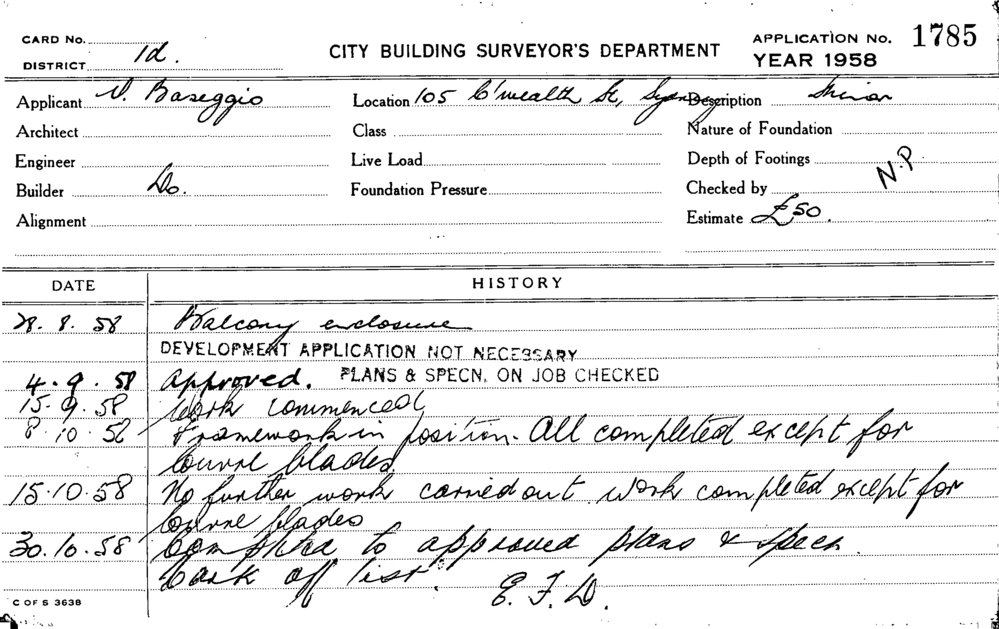 CARD No.
DISTRICT 1d.
CITY BUILDING SURVEYOR'S DEPARTMENT
APPLICATION No. 1785
YEAR 1958
Applicant V. Baseggio
Location 105 C'wealth St, Sydney
Description Minor
Architect
Class
Nature of Foundation
Engineer
Live Load
Depth of Footings
N.P
Builder Do.
Foundation Pressure
Checked by
Alignment
Estimate £50.
DATE
HISTORY
28. 8. 58 Balcony enclosure
DEVELOPMENT APPLICATION NOT NECESSARY
4. 9. 58 Approved. PLANS & SPECN. ON JOB CHECKED
15. 9. 58 Work commenced
8. 10. 58 Framework in position. All completed except for
louvre blades
15. 10. 58 No further work carried out work completed except for
louvre blades
30. 10. 58 Completed to approved plans & specn.
Card off list.
E. F. D.
C OF S 3638